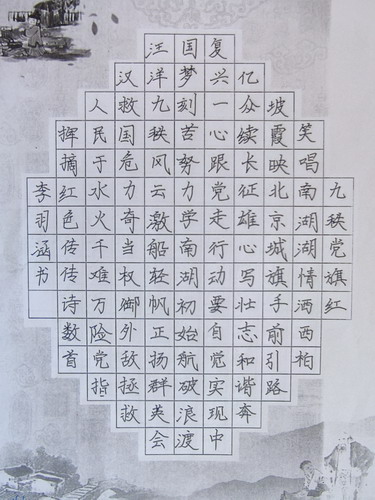 九秩党旗红
笑唱南湖湖情洒西柏
坡霞映北京城旗手前引路
亿众续长征雄心写壮志和谐奔
复兴一心跟党走行动要自觉实现中
国梦刻苦努力学南湖初始航破浪渡
汪洋九秩风云激船轻帆正扬群英会
汉救国危力奇当权御外敌拯救
人民于水火千难万险党指
挥摘红色传传诗数首
李羽涵书